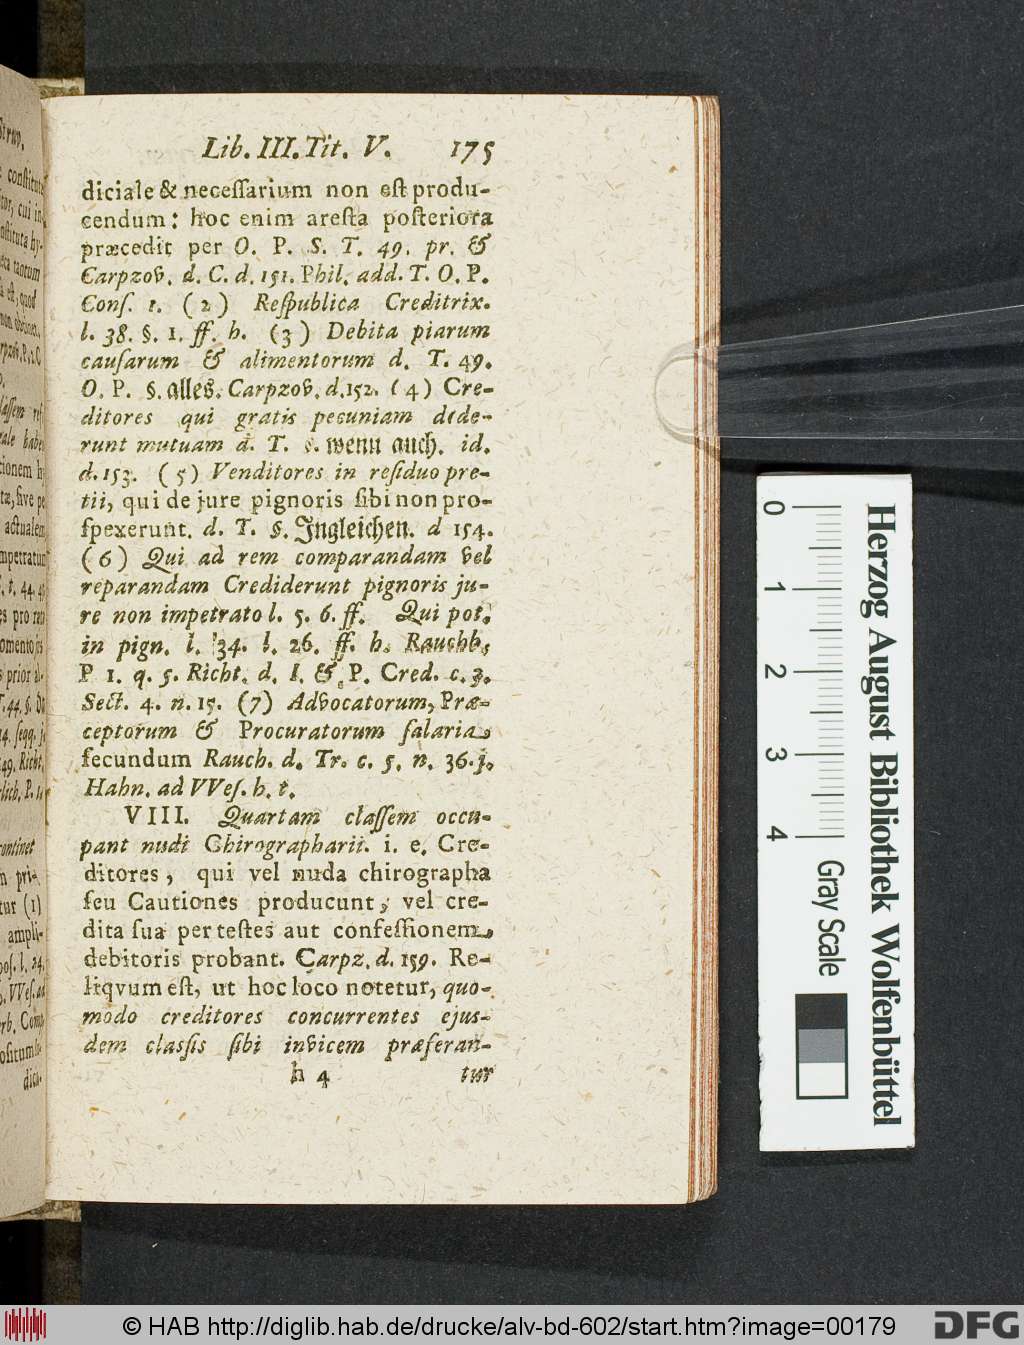 Lib. III. Tit. V. 175
diciale & necessarium non est produ-
cendum: hoc enim aresta posteriora
præcedit per O. P. S. T. 49. pr. &
Carpzov. d. C. d. 151. Phil. add. T. O. P.
Conſ. 1. (2) Reſpublica Creditrix.
l. 38. §. 1. ff. h. (3) Debita piarum
cauſarum & alimentorum d. T. 49.
O. P. §. alles. Carpzov. d. 152. (4) Cre-
ditores qui gratis pecuniam dede-
runt mutuam d. T. §. wenn auch. id.
d. 153. (5) Venditores in reſiduo pre-
tii, qui de jure pignoris ſibi non pro-
ſpexerunt. d. T. §. Ingleichen. d 154.
(6) Qui ad rem comparandam vel
reparandam Crediderunt pignoris ju-
re non impetrato l. 5. 6. ff. Qui pot.
in pign. l. 34. l. 26. ff. h. Rauchb.
P 1. q. 5. Richt. d. I. & P. Cred. c. 3.
Sect. 4. n. 15. (7) Advocatorum, Præ-
ceptorum & Procuratorum ſalaria
ſecundum Rauch. d. Tr. c. 5. n. 36. j.
Hahn. ad VVeſ. h. t.
VIII. Quartam claſſem occu-
pant nudi Chirographarii. i. e. Cre-
ditores, qui vel nuda chirographa
ſeu Cautiones producunt, vel cre-
dita ſua per teſtes aut confeſſionem
debitoris probant. Carpz. d. 159. Re-
liqvum eſt, ut hoc loco notetur, quo-
modo creditores concurrentes ejus-
dem claſſis ſibi invicem præferan-
h 4 tur
0 1 2 3 4
Gray Scale
Herzog August Bibliothek Wolfenbüttel
© HAB http://diglib.hab.de/drucke/alv-bd-602/start.htm?image=00179
DFG